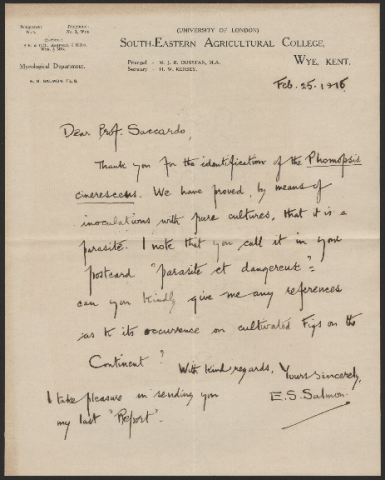 (UNIVERSITY OF LONDON)
SOUTH-EASTERN AGRICULTURAL COLLEGE,
WYE, KENT.
Principal - M. J. R. DUNSTAN, M.A.
Secretary - H. W. KERSEY.
Mycological Department.
E. S. SALMON, F.L.S.
Feb. 25. 1916.
Dear Prof. Saccardo,
Thank you for the identification of the Phomopsis
cinerescens. We have proved, by means of
inoculations with pure cultures, that it is a
parasite. I note that you call it in your
postcard "parasite et dangereux" :
can you kindly give me any references
as to its occurrence on cultivated Figs on the
Continent?
With kind regards, Yours sincerely,
E. S. Salmon.
I take pleasure in sending you
my last "Report".